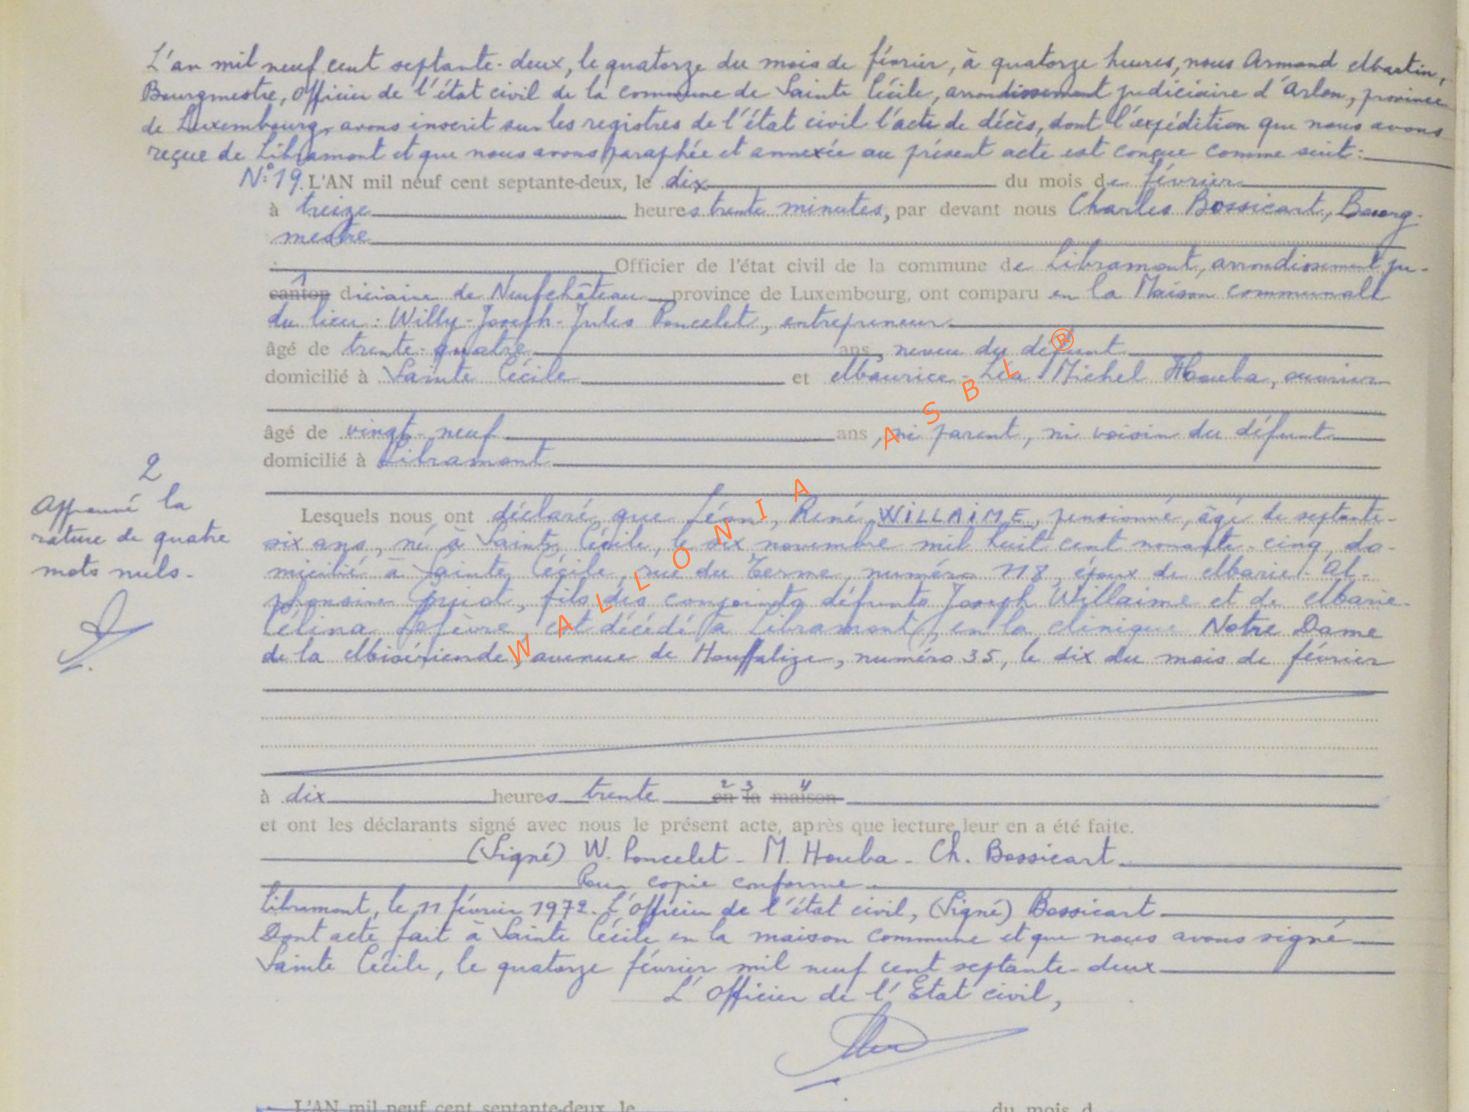 L'an mil neuf cent septante-deux, le quatorze du mois de février, à quatorze heures, nous Armand Martin,
Bourgmestre, Officier de l'état civil de la commune de Sainte Cécile, arrondissement judiciaire d'Arlon, province
de Luxembourg, avons inscrit sur les registres de l'état civil l'acte de décès, dont l'expédition que nous avons
reçue de Libramont et que nous avons paraphée et annexée au présent acte est conçue comme suit :
N° 19. L'AN mil neuf cent septante-deux, le dix du mois de février
à treize heures trente minutes, par devant nous Charles Bossicart, Bourg-
mestre
Officier de l'état civil de la commune de Libramont, arrondissement ju-
canton diciaire de Neufchâteau province de Luxembourg, ont comparu en la Maison communale
du lieu : Willy-Joseph-Jules Poncelet, entrepreneur
âgé de trente-quatre ans, neveu du défunt
domicilié à Sainte Cécile et Maurice-Léa Michel Houba, ouvrier
âgé de vingt-neuf ans, ni parent, ni voisin du défunt
domicilié à Libramont
2
Approuvé la
rature de quatre
mots nuls.
Lesquels nous ont déclaré que Léon, René WILLAIME, pensionné, âgé de septante-
six ans, né à Sainte Cécile, le six novembre mil huit cent nonante-cinq, do-
micilié à Sainte Cécile, rue du Terme, numéro 118, époux de Marie-Al-
phonsine Guiot, fils des conjoints défunts Joseph Willaime et de Marie-
Célina Lefèvre est décédé à Libramont, en la clinique Notre Dame
de la Miséricorde, avenue de Houffalize, numéro 35, le dix du mois de février
à dix heures trente en la maison
2 3 4
et ont les déclarants signé avec nous le présent acte, après que lecture leur en a été faite.
(Signé) W. Poncelet - M. Houba - Ch. Bossicart
Pour copie conforme
Libramont, le 11 février 1972. L'Officier de l'état civil, (Signé) Bossicart
Dont acte fait à Sainte Cécile en la maison commune et que nous avons signé
Sainte Cécile, le quatorze février mil neuf cent septante-deux
L'Officier de l'Etat civil,
L'AN mil neuf cent septante-deux, le du mois d
WALLONIA ASBL ®